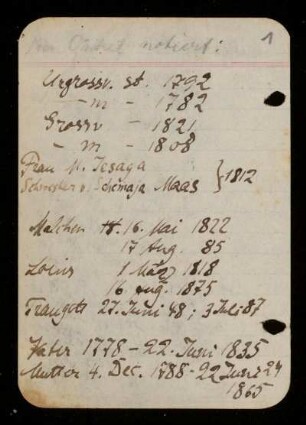 notiert: 1
Urgrossv. st. 1792
- m - 1782
Grossv - 1821
- m - 1808
Frau N. Tesaga
Schwester v. Schemaja Maas } 1812
Malchen 16. Mai 1822
17 Aug. 85
Louis 1 März 1818
16 Aug. 1875
Traugott 27. Juni 48; 3 Juli 87
Vater 1778 - 22. Juni 1835
Mutter 4. Dec. 1788 - 22 Juni
1865